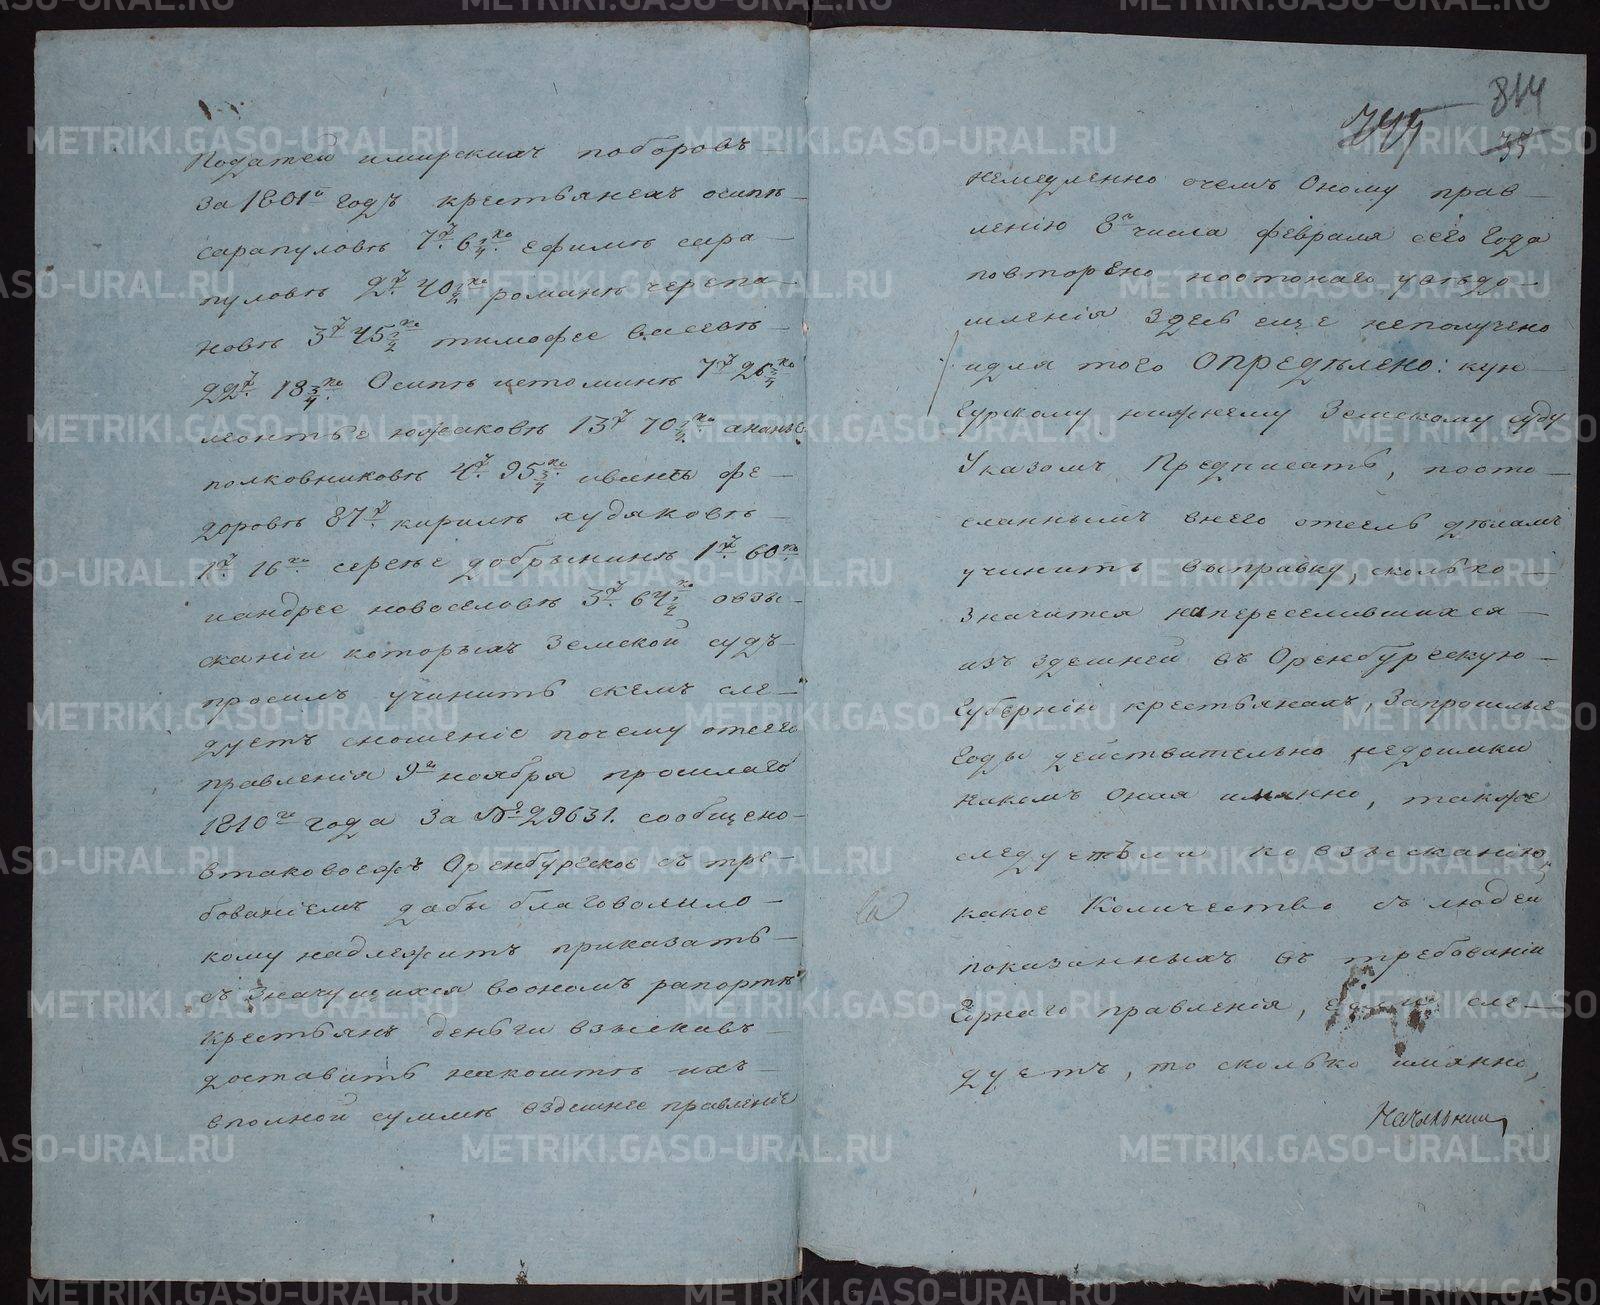 податей имирскихъ поборовъ
за 1801й годъ крестьянехъ осипѣ
сарапуловѣ 7р. 6¼ ко ефимѣ сара
пуловѣ 2р. 40½ ко романѣ черепа
новѣ 3р 45½ ко тимофее
22р. 18¾ ко Осипѣ истоминѣ 7р 26¾ ко
леонтье южаковѣ 13р 70¼ ко ананье
полковниковѣ 4р. 95¾ ко иванѣ фе
доровѣ 87р. кирилѣ худяковѣ
1р. 16ко сергѣе добрынинѣ 1р. 60ко
иандрее новоселовѣ 3р. 64¼ ко овзы
сканіи которыхъ Земской судъ
просилъ учинить скемъ сле
дуетъ сношеніе почему отсего
правленія 9го ноября прошлаго
1810го года За № 29631. сообщено
втаковоежъ Оренбургское съ тре
бованіемъ дабы благоволило
кому надлежитъ приказать
съ Значущихся вономъ рапортѣ
крестьянъ деньги взыскавъ
доставить накоштѣ ихъ
вполной суммѣ вздешнее правленіе
814
745
35
немедленно очемъ Оному прав
ленію 8го числа февраля сего Года
повторено ноотонаго увѣдо
мленія Здесь еще неполучено
идля того Опредѣлено: кун
гурскому нижнему Земскому суду
Указомъ Предписать, поото
сланнымъ внего отсель дѣламъ
учинить выправку, сколько
Значится напереселившихся
изъ здешней въ Оренбургскую
Губернію крестьянахъ, Запрошлые
Годы действительно недоимки
накомъ Оная имянно, также
следуетъли ко взысканію
какое Количество съ людей
показанныхъ въ требованіи
Горнаго правленія, сле
дуетъ, то сколько имянно,
Начальник